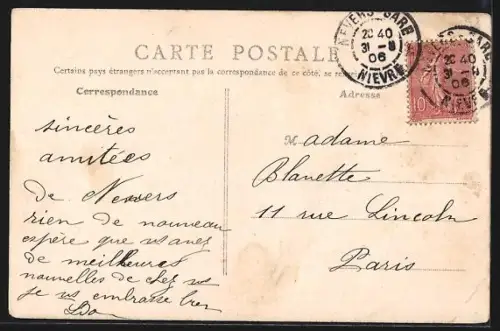 CARTE POSTALE
Certains pays étrangers n'acceptent pas la correspondance de ce côté, se
Correspondance
Adresse
NEVERS GARE
20 40
31 -8
06
NIEVRE
10
sincères
amitées
de Nevers
rien de nouveau
espère que vs avez
de meilleures
nouvelles de chez vs
je vs embrasse bien
Madame
Blanette
11 rue Lincoln
Paris